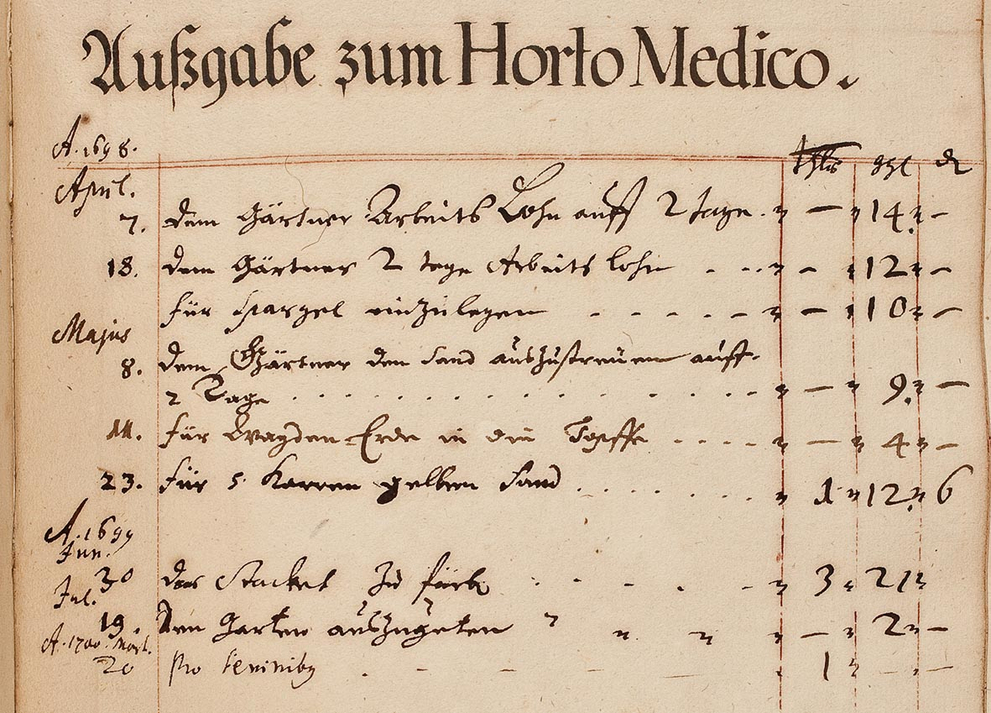 Außgabe zum Horto Medico.
A. 1698. thlr ggl d
April.
7. dem Gärtner Arbeits Lohn auff 2 tage. — 14. —
18. dem Gärtner 2 tage Arbeits lohn — 12 —
für Spargel einzulegen — 10 —
Majus
8. dem Gärtner den Sand auszustreuen auff
2 Tage — 9. —
11. für Erde in die Töpffe — 4 —
23. für 5 Karren gelben Sand 1 12. 6
A. 1699
Jun.
30 das Stacket zu färb 3 21
Jul.
19 Den Garten auszugeten — 2 —
A. 1700. Mart.
20 pro 1 —